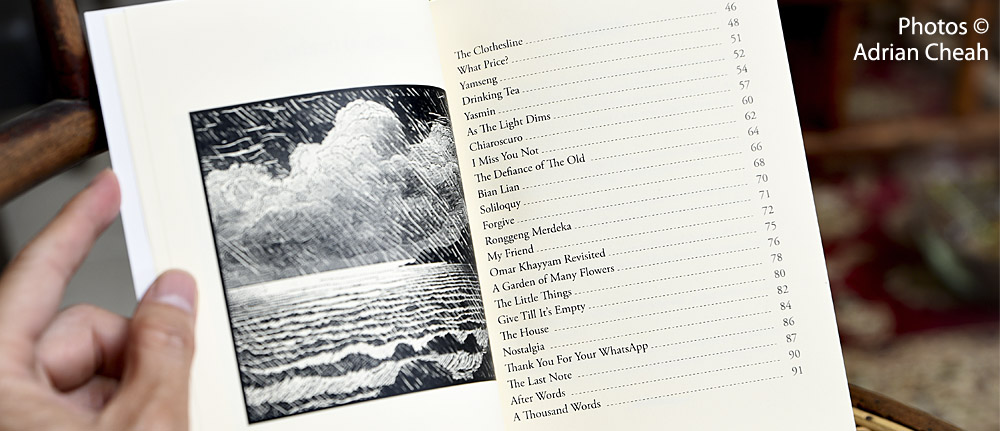 Photos ©
Adrian Cheah
The Clothesline 46
What Price? 48
Yamseng 51
Drinking Tea 52
Yasmin 54
As The Light Dims 57
Chiaroscuro 60
I Miss You Not 62
The Defiance of The Old 64
Bian Lian 66
Soliloquy 68
Forgive 70
Ronggeng Merdeka 71
My Friend 72
Omar Khayyam Revisited 75
A Garden of Many Flowers 76
The Little Things 78
Give Till It's Empty 80
The House 82
Nostalgia 84
Thank You For Your WhatsApp 86
The Last Note 87
After Words 90
A Thousand Words 91